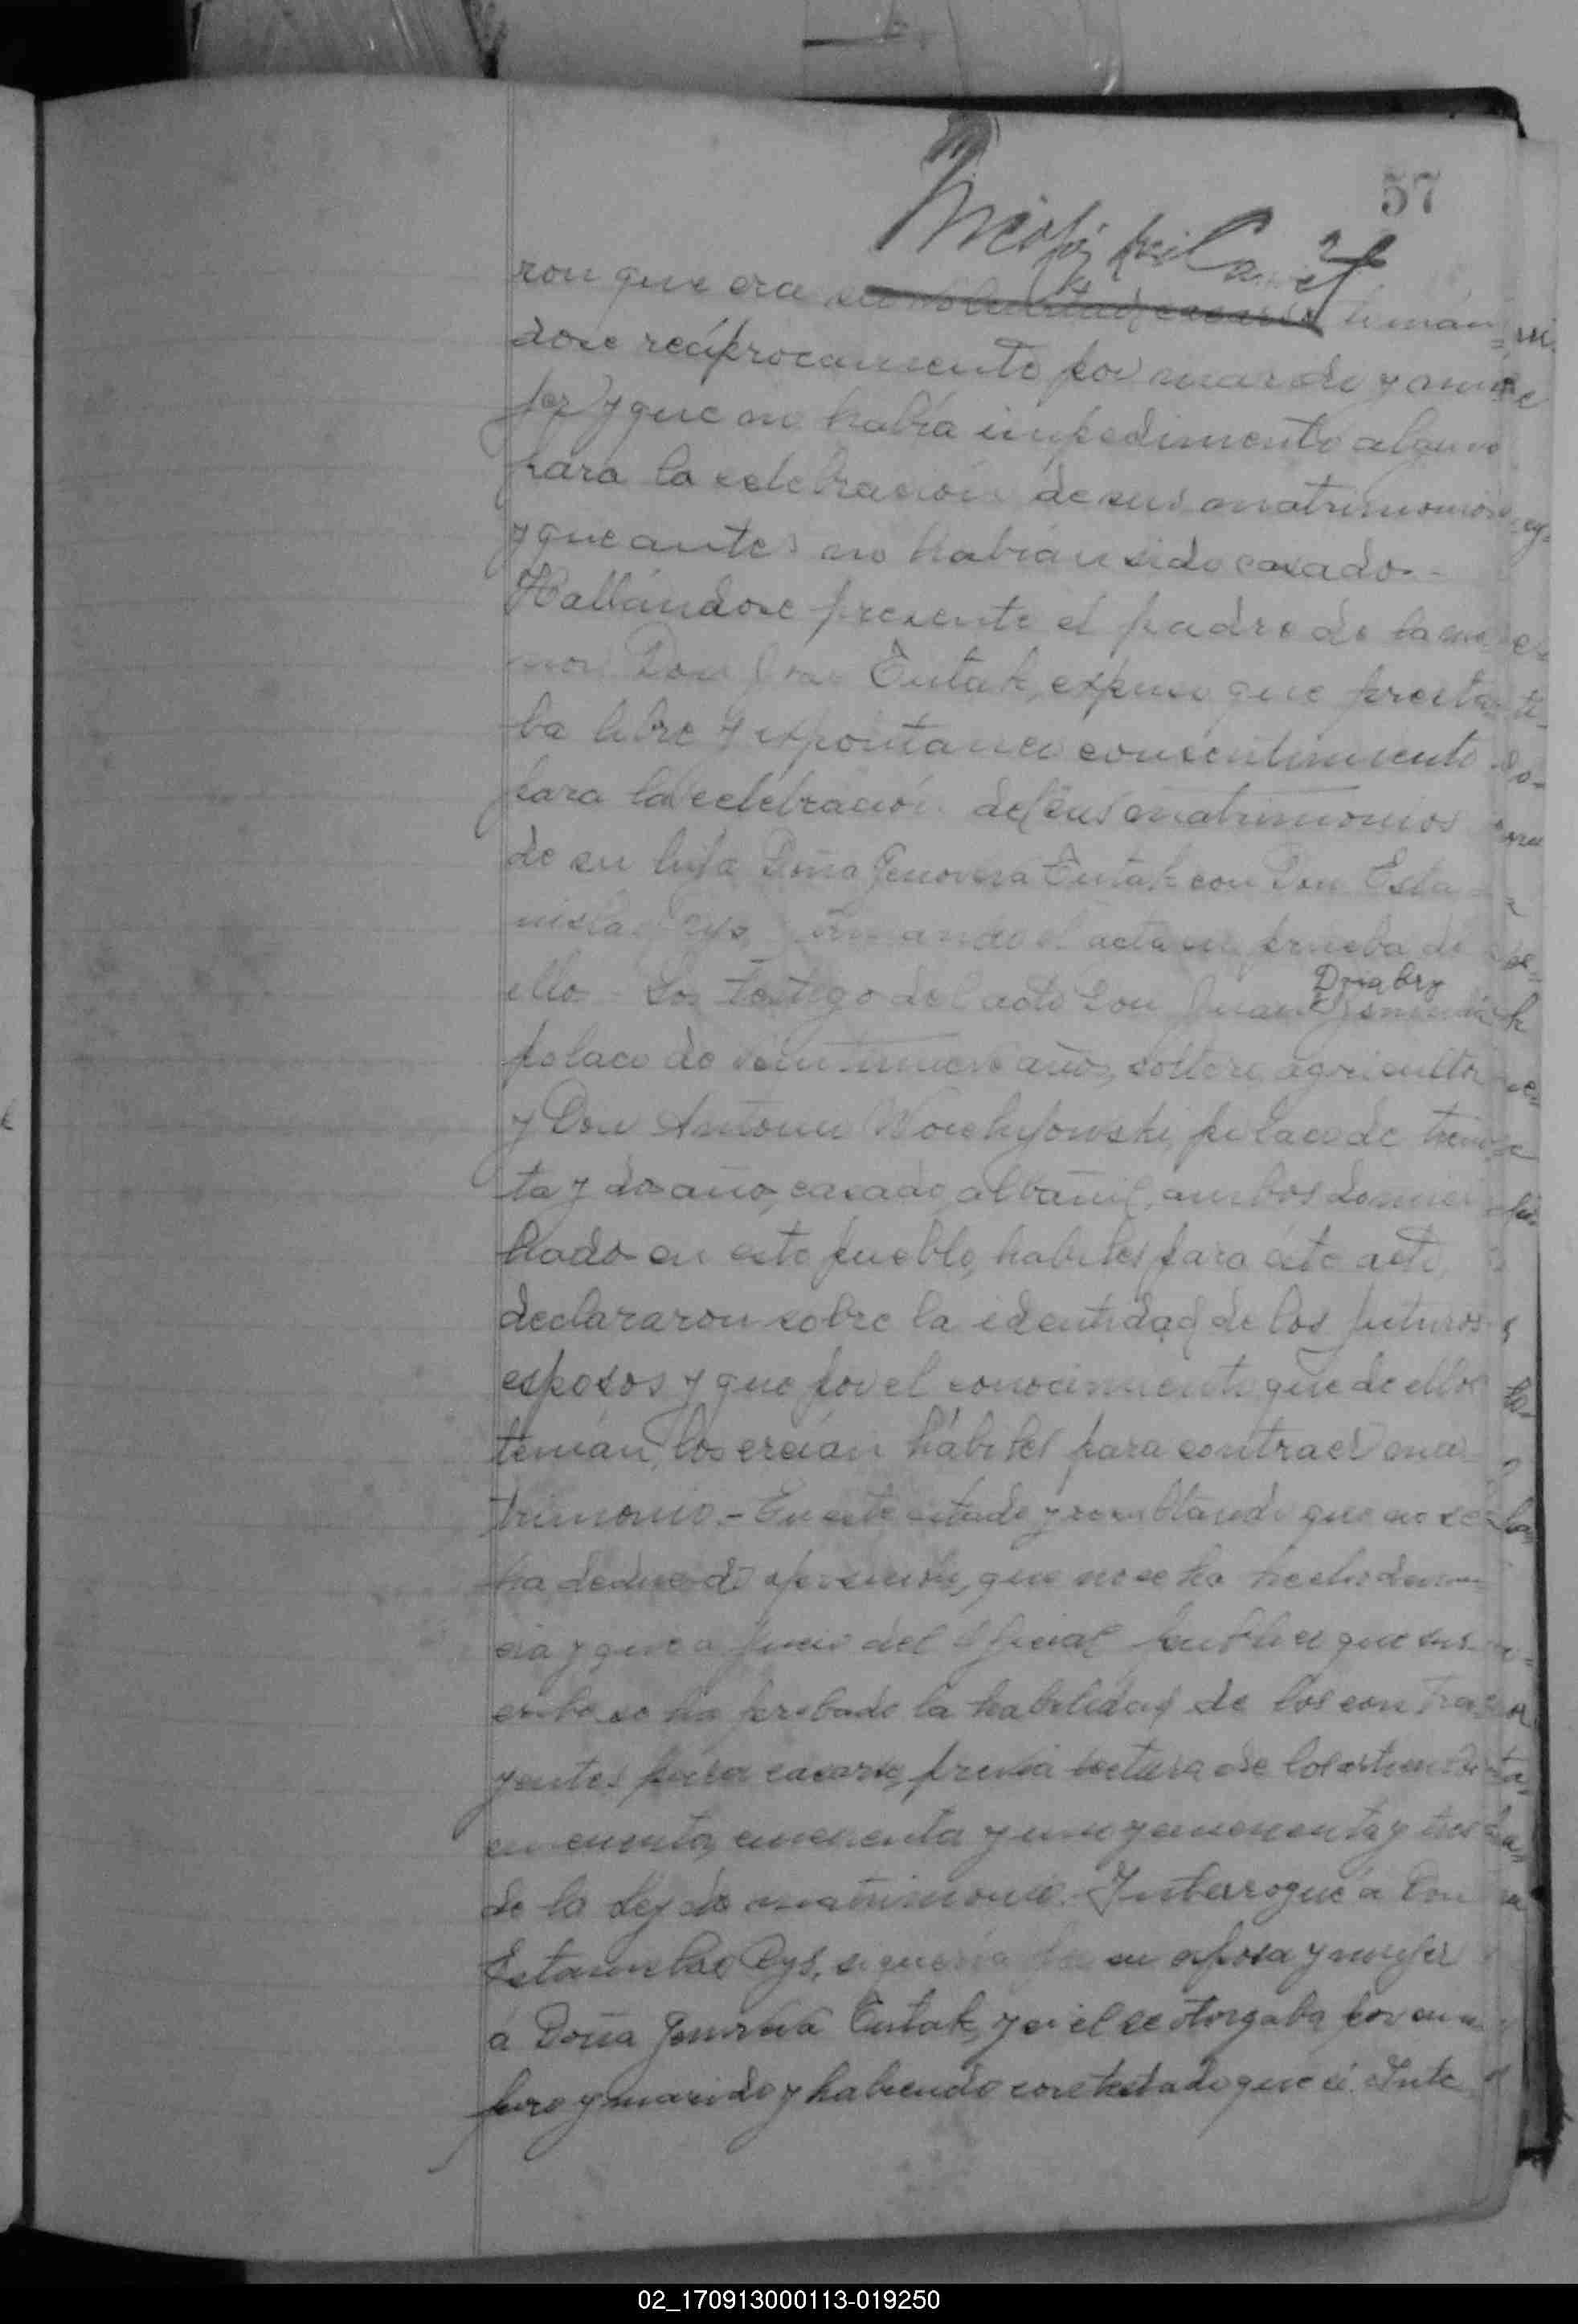 57
ron que era su voluntad casarse tomán=
dose recíprocamente por marido y mu=
jer y que no había impedimento alguno
para la celebración de sus matrimonios
y que antes no habían sido casados.-
Hallándose presente el padre de la me=
nor Don Eutak, expuso que presta=
ba libre y espontaneo consentimiento
para la celebración de sus matrimonios
de su hija Doña Genoveva Eutak con Don Esta=
nislao Rys, firmando el acta en prueba de
ello - Los testigos del acto Don Juan
Dziabry
polaco de veintinueve años, soltero, agricultor
y Don Antonio polaco de trein=
ta y dos años, casado, albañil, ambos domici
liados en este pueblo, habiles para éste acto,
declararon sobre la identidad de los futuros
esposos y que por el conocimiento que de ellos
tenían, los creían hábiles para contraer ma=
trimonio.- En este estado y resultando que no se
ha deducido oposición, que no se ha hecho denun=
cia y que a juicio del Oficial Publico que sus=
cribe se ha probado la habilidad de los contra=
yentes para casarse, previa lectura de los articulos
cincuenta, cincuenta y uno y cincuenta y tres
de la Ley de matrimonio.- Interrogué a Don
Estanislao Rys, si quería por su esposa y mujer
á Doña Genoveva Eutak, y si él se otorgaba por su es
poso y marido y habiendo contestado que si. Inte
02_170913000113-019250